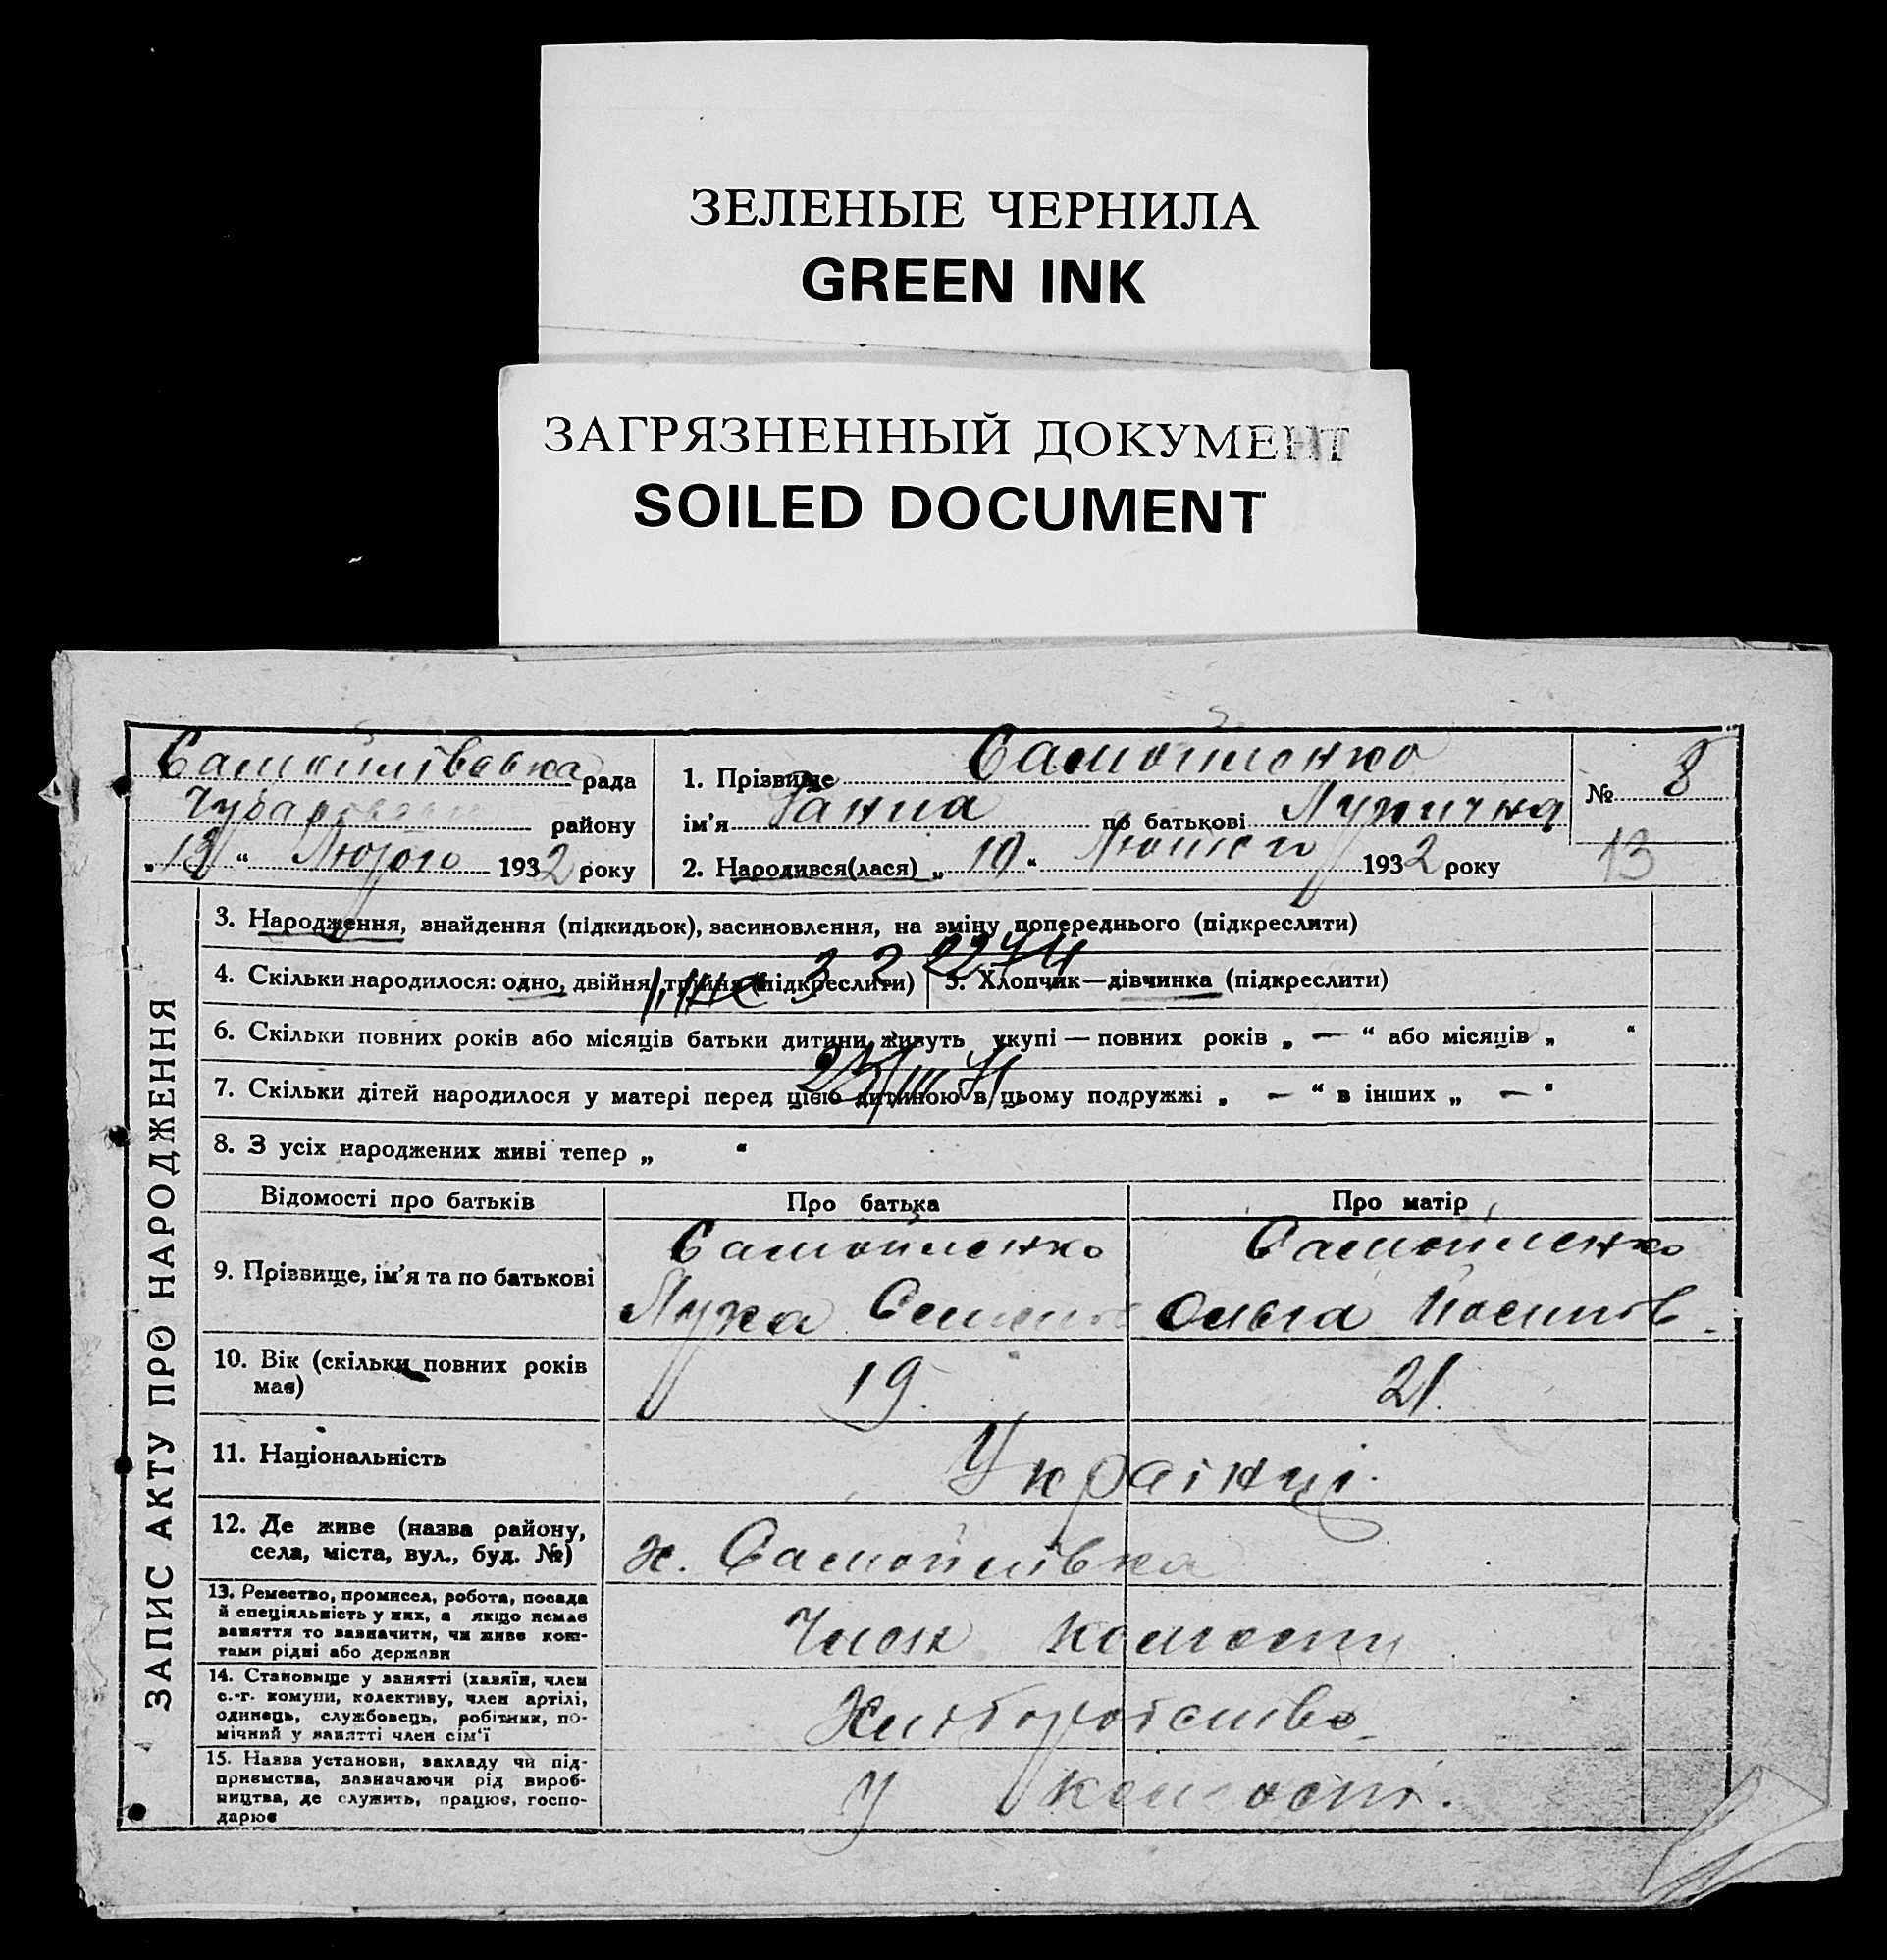 ЗЕЛЕНЫЕ ЧЕРНИЛА
GREEN INK
ЗАГРЯЗНЕННЫЙ ДОКУМЕНТ
SOILED DOCUMENT
Самойлівська рада
району
„13“ Лютого 1932 року
1. Прізвище Самойленко
ім'я Ганна по батькові Лукична
2. Народився(лася) „10“ Лютого 1932 року
№ 8
13
ЗАПИС АКТУ ПРО НАРОДЖЕННЯ
3. Народження, знайдення (підкидьок), засиновлення, на зміну попереднього (підкреслити)
4. Скільки народилося: одно, двійня, трійня (підкреслити)
5. Хлопчик—дівчинка (підкреслити)
6. Скільки повних років або місяців батьки дитини живуть укупі — повних років „ — “ або місяців „ “
7. Скільки дітей народилося у матері перед цією дитиною в цьому подружжі „ — “ в інших „ — “
8. З усіх народжених живі тепер „ “
Відомості про батьків
Про батька
Про матір
9. Прізвище, ім'я та по батькові
Самойленко
Лука Семенов
Самойленко
Ольга Йосипов
10. Вік (скільки повних років
має)
19.
21.
11. Національність
Українці.
12. Де живе (назва району,
села, міста, вул., буд. №)
х. Самойлівка
13. Ремество, промисел, робота, посада
й спеціяльність у них, а якщо немає
заняття то зазначити, чи живе кош-
тами рідні або держави
Член комости
14. Становище у занятті (хазяїн, член
с.-г. комуни, колективу, член артілі,
одинець, службовець, робітник, по-
мічний у занятті член сім'ї
Хліборобство
15. Назва установи, закладу чи під-
приємства, зазначаючи рід вироб-
ництва, де служить, працює, госпо-
дарює
У